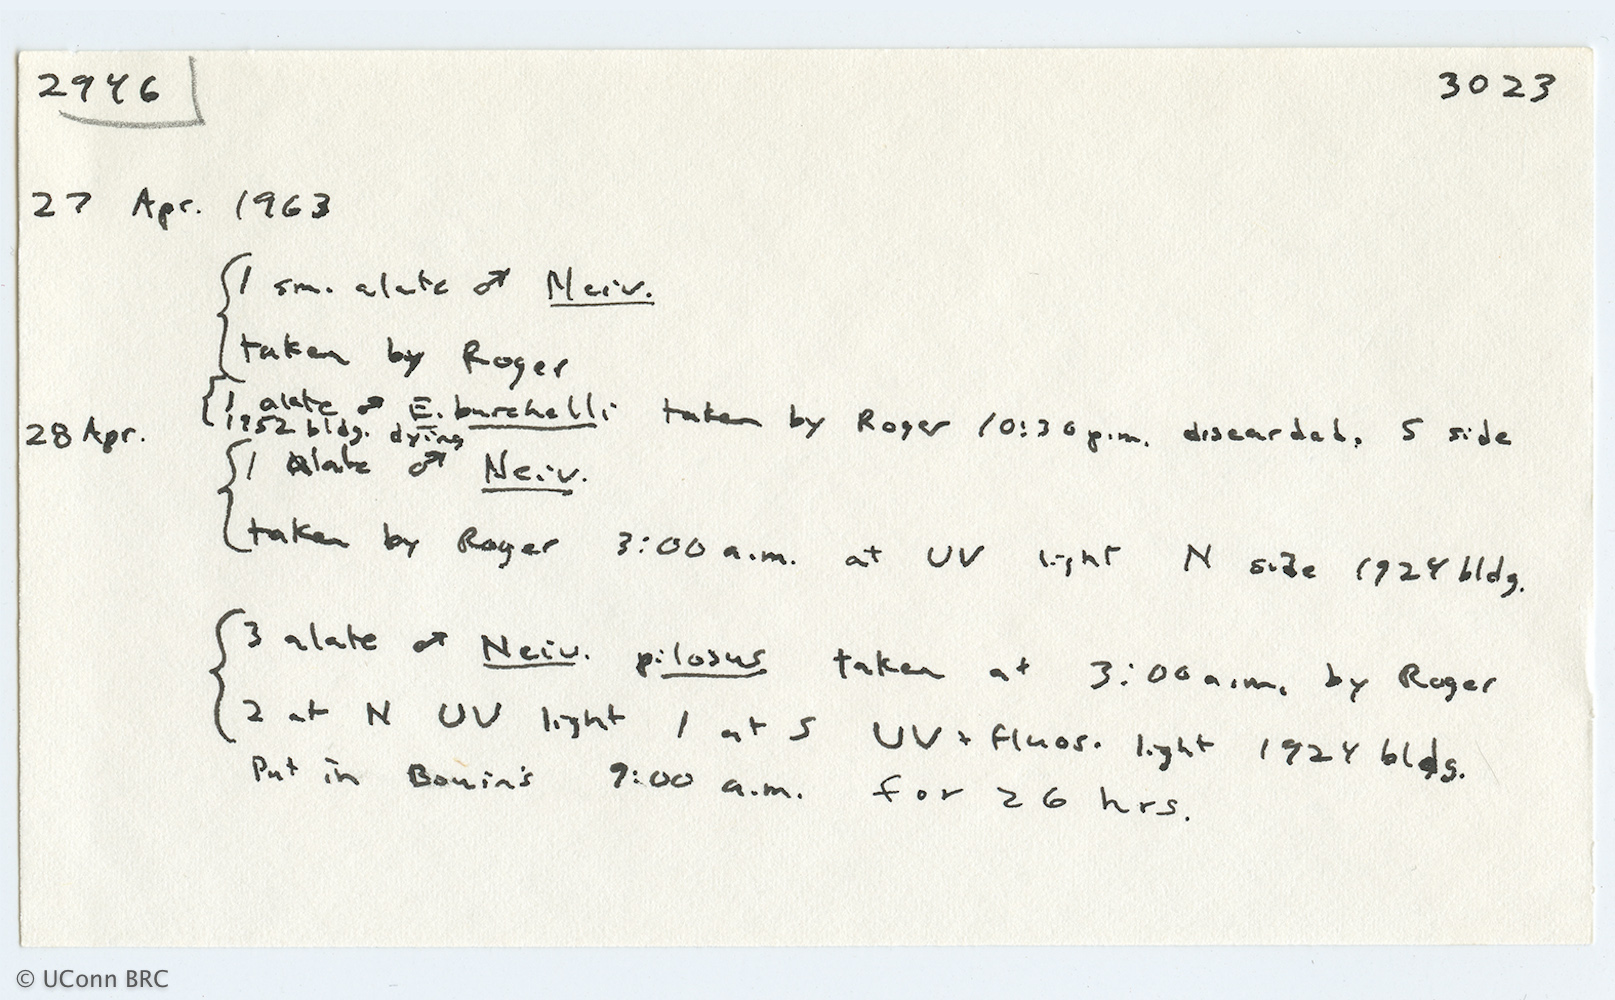 2946
3023
27 Apr. 1963
1 sm. alate ♂ Neiv.
taken by Roger
1 alate ♂ E. burchelli taken by Roger 10:30 p.m. discarded. S side
1952 bldg. dying
28 Apr.
1 alate ♂ Neiv.
taken by Roger 3:00 a.m. at UV light N side 1924 bldg.
3 alate ♂ Neiv. pilosus taken at 3:00 a.m. by Roger
2 at N UV light 1 at S UV + fluos. light 1924 bldg.
Put in Bouin's 9:00 a.m. for 26 hrs.
© UConn BRC